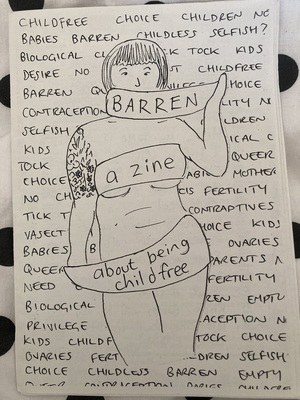 CHILDFREE CHOICE CHILDREN NO
BABIES BARREN CHILDLESS SELFISH?
BIOLOGICAL CL CK TOCK KIDS
DESIRE NO ST CHILDFREE
BARREN QU VILEGE CHOICE
CONTRACEPTION BARREN LITY NO
SELFISH LDREN
KIDS ICAL C
TOCK a zine QUEER
CHOICE ABIE MOTHER
NO CH EIS FERTILITY
TICK T CONTRAPTIVES
VASECT HOICE KIDS
BABIES B OVARIES
QUEER about being PARENTS
NEED childfree FERTILITY
BIOLOGICAL REN EMPTY
PRIVILEGE ACEPTION NO
KIDS CHILDF TOCK CHOICE
OVARIES FERT LDREN SELFISH
CHOICE CHILDLESS BARREN EMPTY